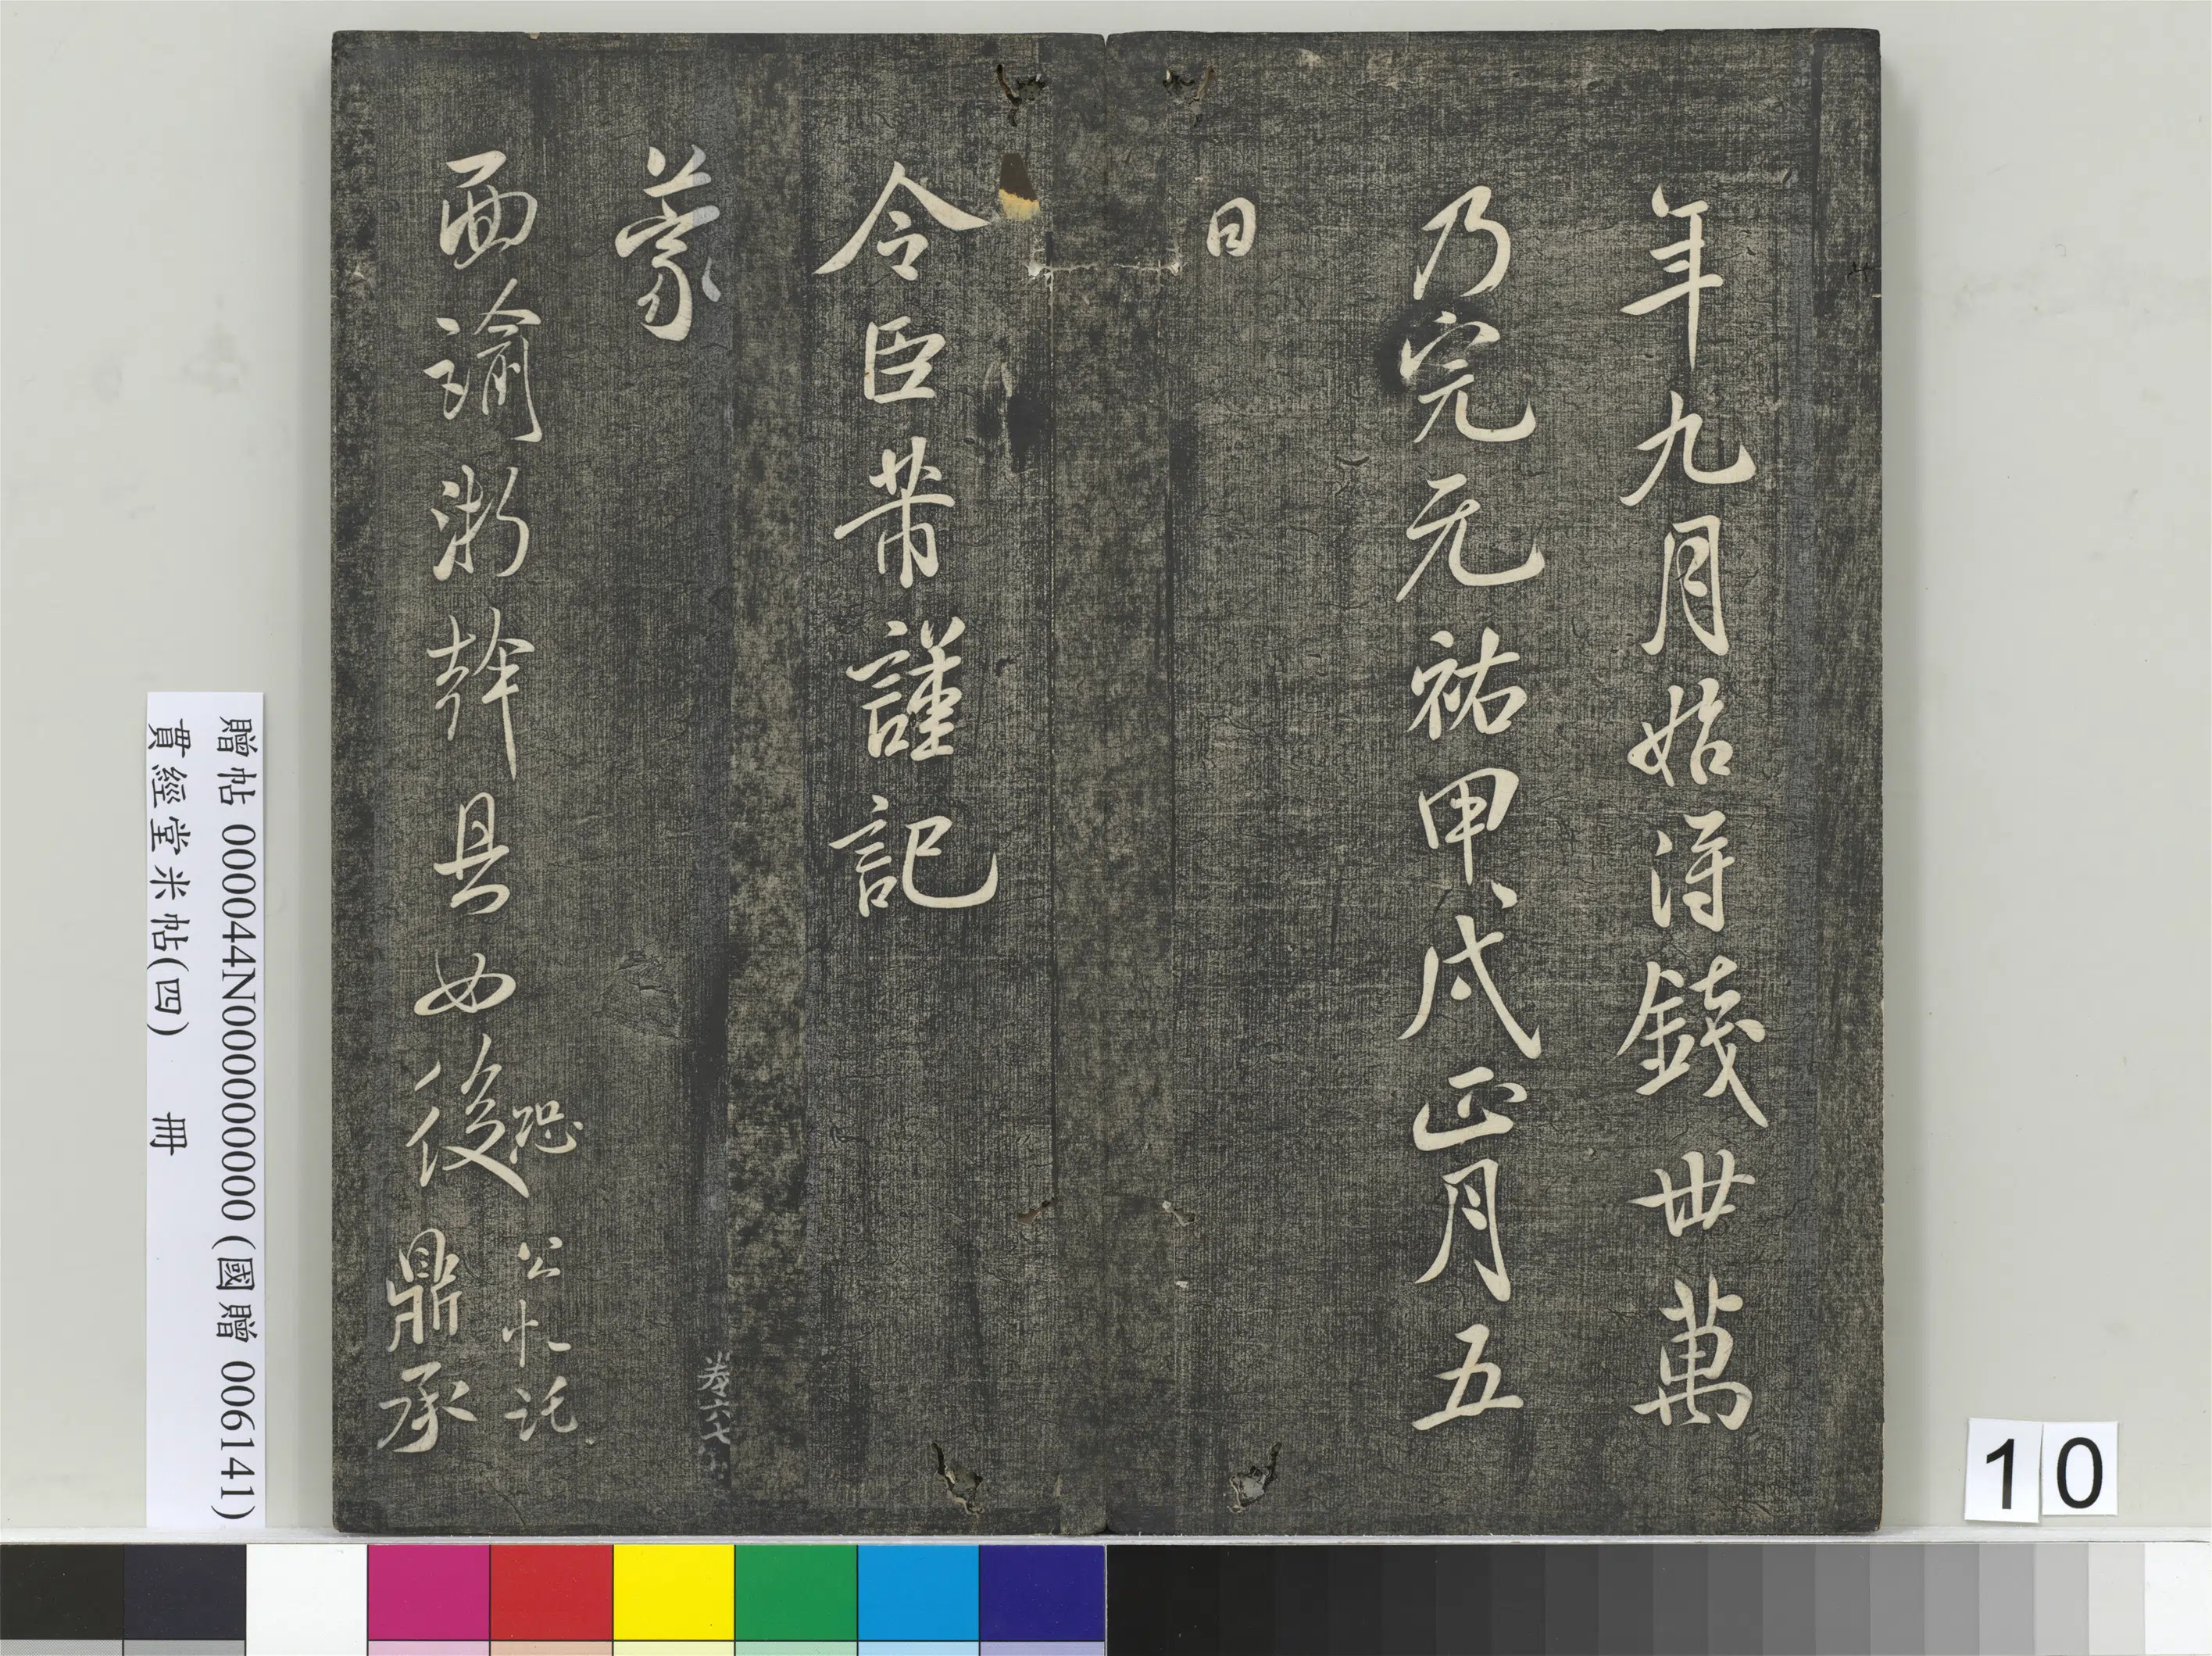 年九月始得錢卅萬
乃完元祐甲戌正月五
日
令臣芾謹記
蒙
面諭浙幹具如後
恐
公忙託
鼎承
卷六七
贈帖 000044N000000000 (國贈 006141)
貫經堂米帖(四) 冊
10